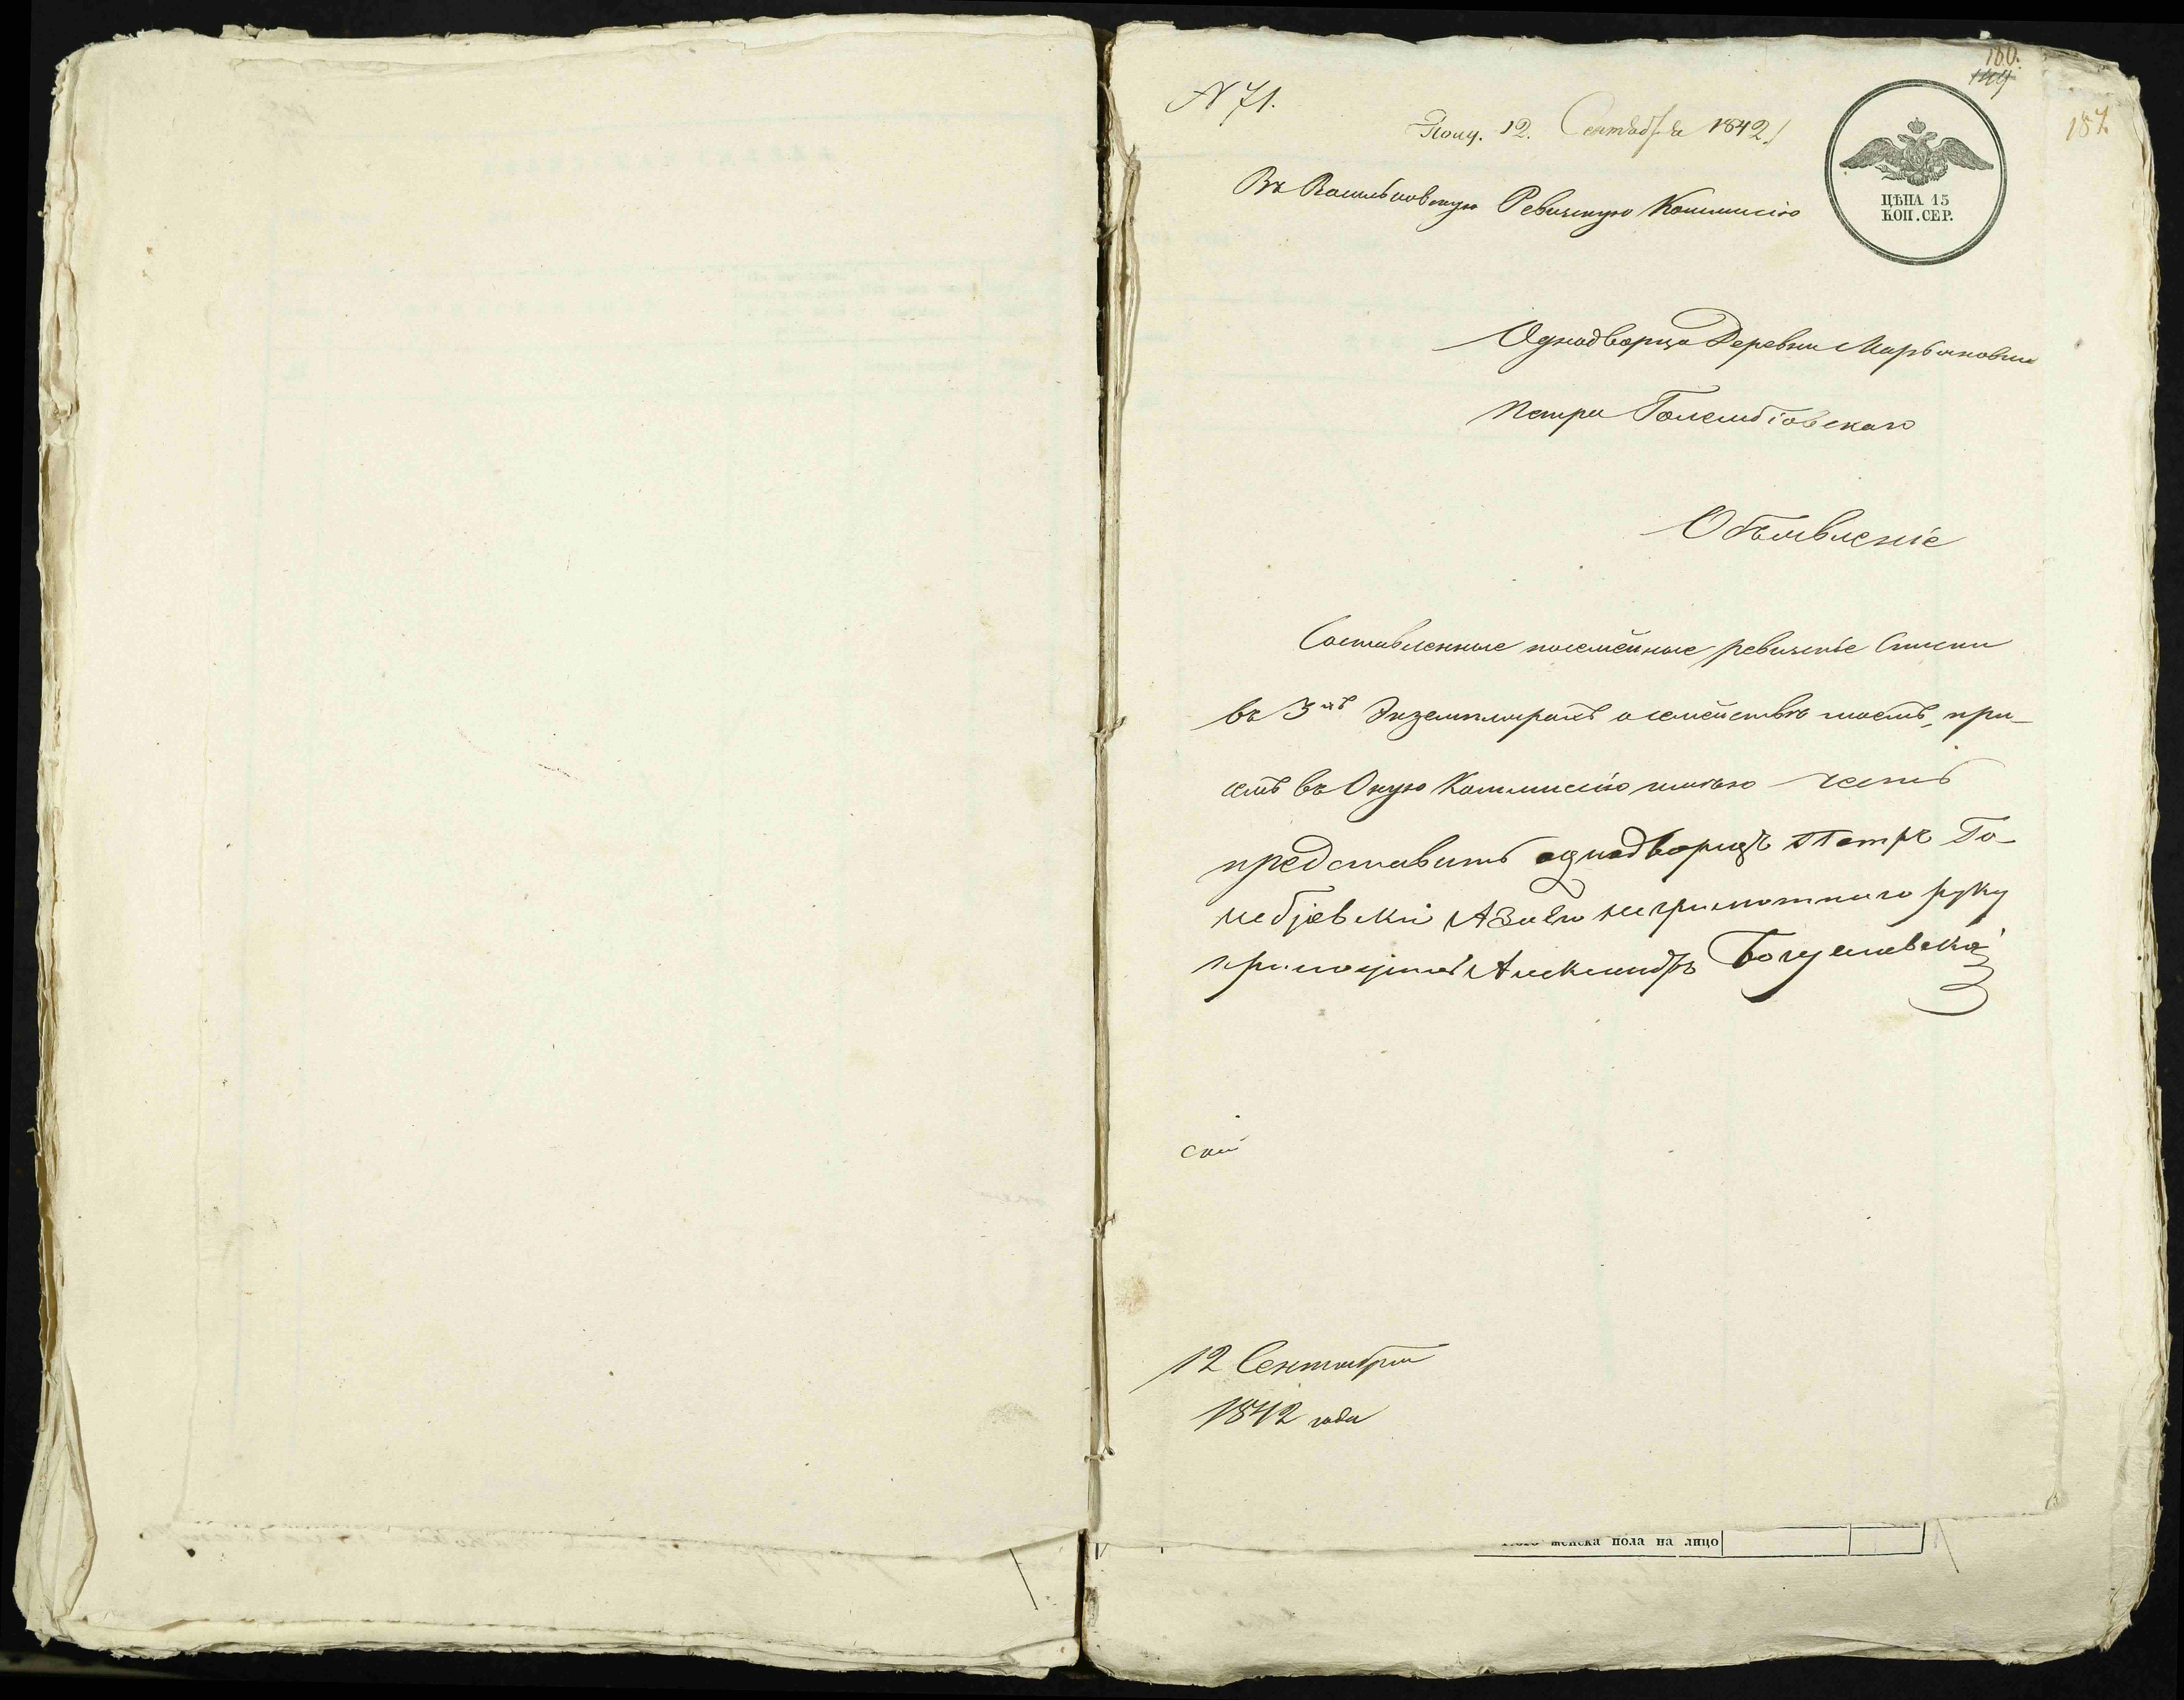 180.
144
187.
N 71.
Полу. 12. Сентября 1842
ЦѢНА 15
КОП. СЕР.
Въ Васильковскую Ревизскую Коммисію
Однодворца Деревни Марьяновки
Петра Голембіовскаго
Объявленіе
Составленные посемейные ревизскіе Списки
въ 3хъ Экземплярахъ о семействѣ моемъ, при
семъ въ Оную Коммиссію имѣю честь
представить однодворецъ Петръ Го-
лебіовскій А За его неграмотного руку
приложилъ Александръ Богуславскій
12 Сентября
1842 года
женска пола на лицо